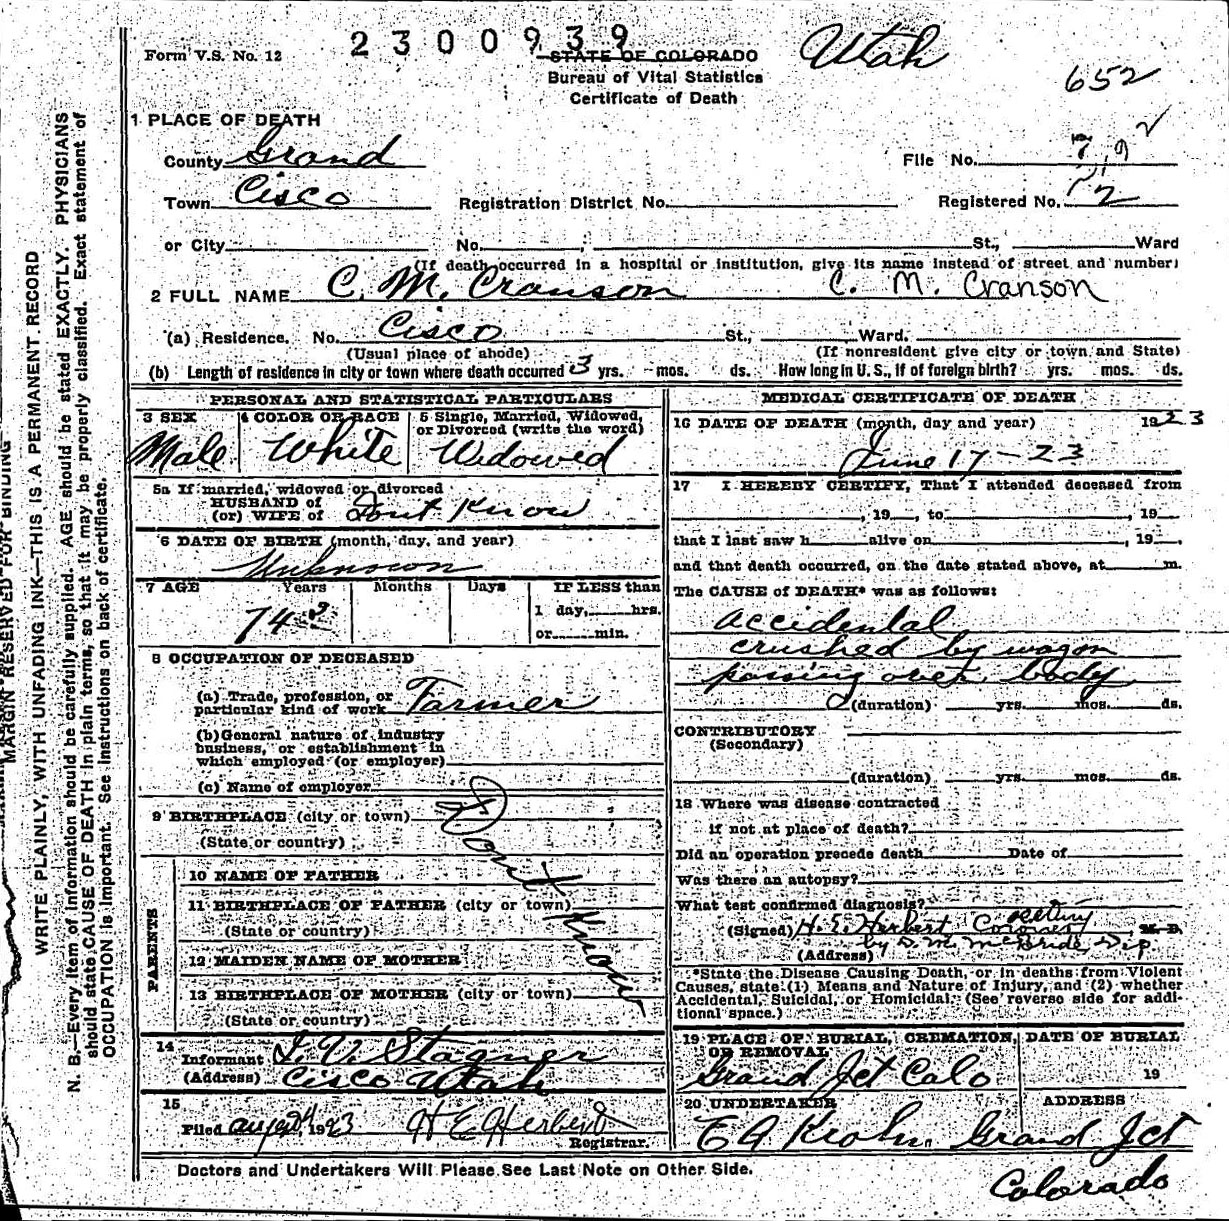 2300939
Form V.S. No. 12
STATE OF COLORADO Utah
Bureau of Vital Statistics
Certificate of Death
652
1 PLACE OF DEATH
County Grand
File No.
Town Cisco
Registration District No.
Registered No. 2
or City No. St., Ward
(If death occurred in a hospital or institution, give its name instead of street and number)
2 FULL NAME C. M. Cranson C. M. Cranson
(a) Residence. No. Cisco St., Ward.
(Usual place of abode) (If nonresident give city or town and State)
(b) Length of residence in city or town where death occurred 3 yrs. mos. ds. How long in U. S., if of foreign birth? yrs. mos. ds.
PERSONAL AND STATISTICAL PARTICULARS
3 SEX Male
4 COLOR OR RACE White
5 Single, Married, Widowed, or Divorced (write the word) Widowed
5a If married, widowed or divorced
HUSBAND of
(or) WIFE of Dont Know
6 DATE OF BIRTH (month, day, and year)
Unknown
7 AGE Years Months Days IF LESS than
74 1 day, hrs.
or min.
8 OCCUPATION OF DECEASED
(a) Trade, profession, or
particular kind of work Farmer
(b) General nature of industry
business, or establishment in
which employed (or employer)
(c) Name of employer
9 BIRTHPLACE (city or town)
(State or country)
Dont Know
PARENTS
10 NAME OF FATHER
11 BIRTHPLACE OF FATHER (city or town)
(State or country)
12 MAIDEN NAME OF MOTHER
13 BIRTHPLACE OF MOTHER (city or town)
(State or country)
14
Informant L. V. Stagner
(Address) Cisco Utah
15
Filed 1923 H E Herbert
Registrar.
MEDICAL CERTIFICATE OF DEATH
16 DATE OF DEATH (month, day and year) 1923
June 17-23
17 I HEREBY CERTIFY, That I attended deceased from
, 19 , to , 19
that I last saw h alive on , 19 ,
and that death occurred, on the date stated above, at m.
The CAUSE of DEATH* was as follows:
accidental
crushed by wagon
passing over body
(duration) yrs. mos. ds.
CONTRIBUTORY
(Secondary)
(duration) yrs. mos. ds.
18 Where was disease contracted
if not at place of death?
Did an operation precede death Date of
Was there an autopsy?
What test confirmed diagnosis?
(Signed) H. E. Herbert acting Coroner, M. D.
by D. M. McBride Dip
(Address)
*State the Disease Causing Death, or in deaths from Violent
Causes, state (1) Means and Nature of Injury, and (2) whether
Accidental, Suicidal, or Homicidal. (See reverse side for addi-
tional space.)
19 PLACE OF BURIAL, CREMATION, OR REMOVAL DATE OF BURIAL
Grand Jct Colo 19
20 UNDERTAKER ADDRESS
Krohn Grand Jct
Colorado
Doctors and Undertakers Will Please See Last Note on Other Side.
MARGIN RESERVED FOR BINDING
WRITE PLAINLY, WITH UNFADING INK—THIS IS A PERMANENT RECORD
N. B.—Every item of information should be carefully supplied. AGE should be stated EXACTLY. PHYSICIANS
should state CAUSE OF DEATH in plain terms, so that it may be properly classified. Exact statement of
OCCUPATION is important. See instructions on back of certificate.